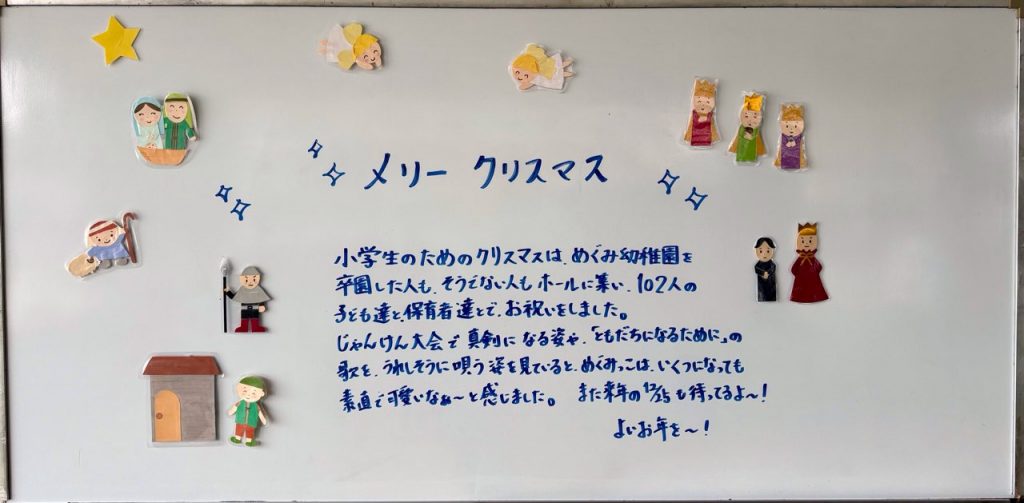 メリー クリスマス
小学生のためのクリスマスは、めぐみ幼稚園を
卒園した人も、そうでない人もホールに集い、102人の
子ども達と、保育者達とで、お祝いをしました。
じゃんけん大会で真剣になる姿や、「ともだちになるために」の
歌を、うれしそうに唄う姿を見ていると、めぐみっこは、いくつになっても
素直で可愛いなぁ〜と感じました。 また来年の12/25も待ってるよ〜!
よいお年を〜!